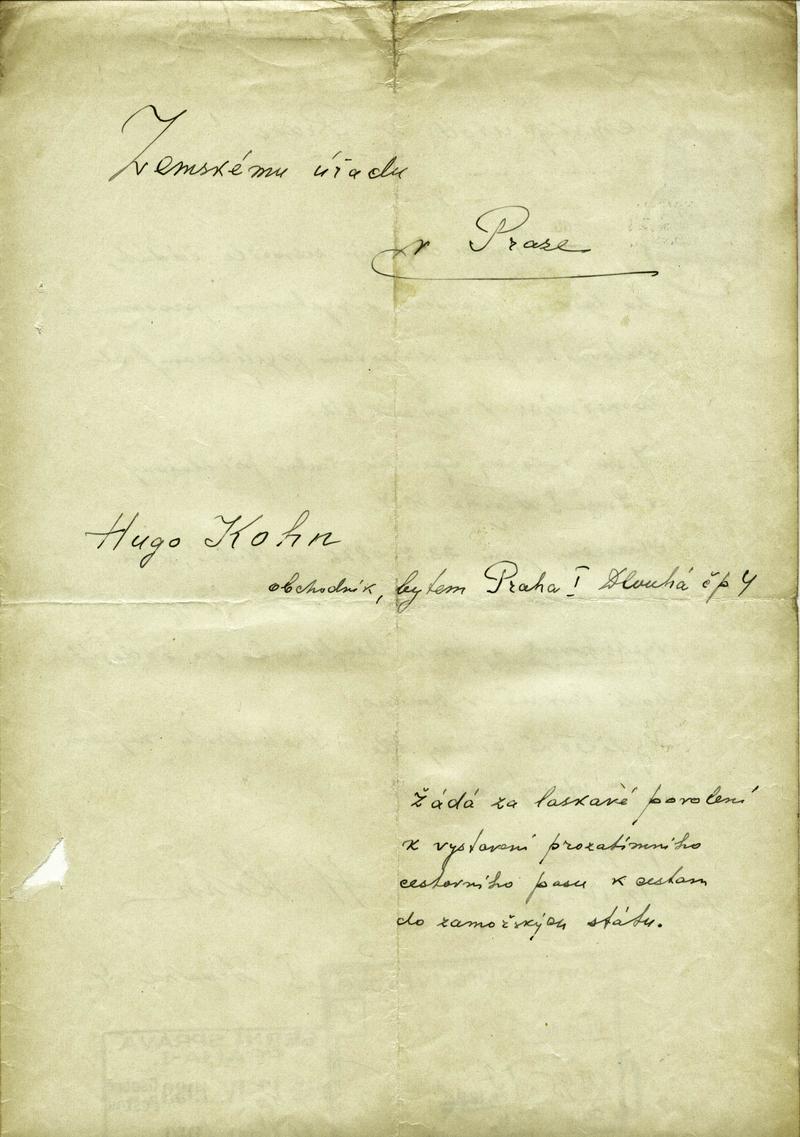 Zemskému úřadu
v Praze
Hugo Kohn
obchodník, bytem Praha I Dlouhá čp 4
Žádá za laskavé povolení
k vystavení prozatímního
cestovního pasu k cestam
do zamořských státu.